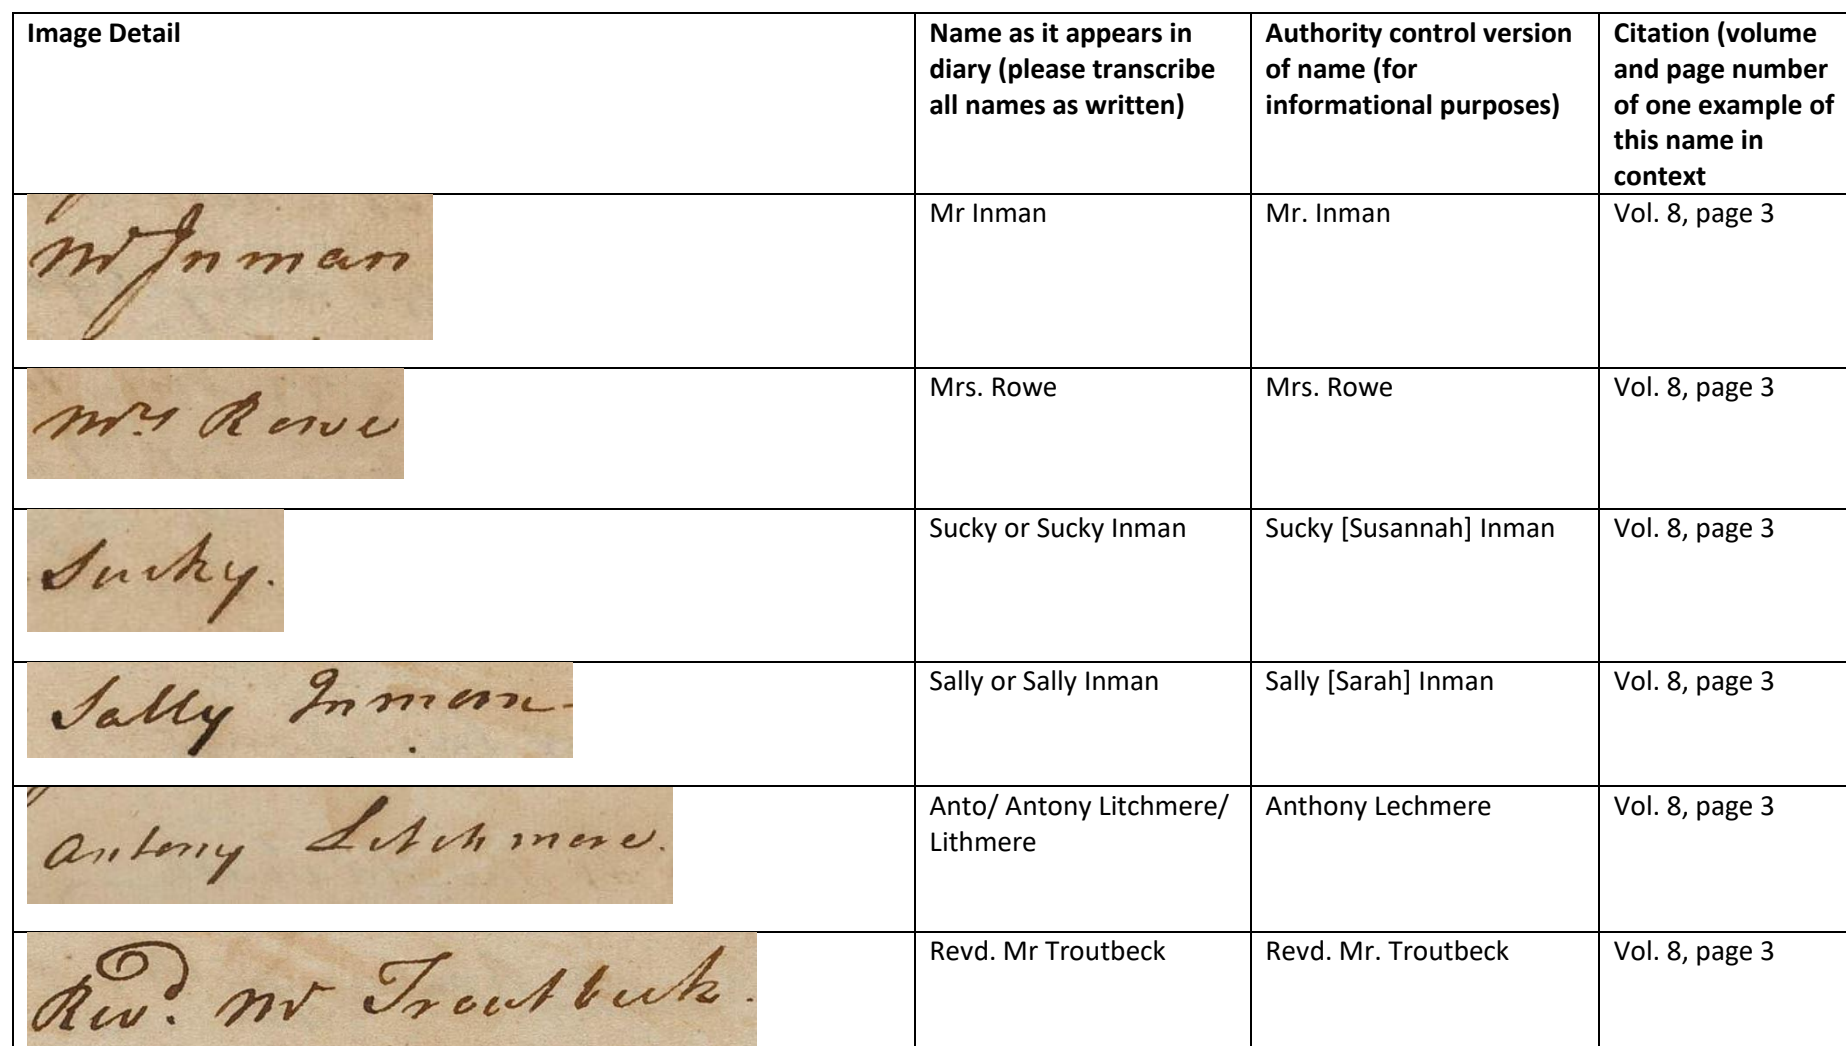 Image Detail
Name as it appears in
diary (please transcribe
all names as written)
Authority control version
of name (for
informational purposes)
Citation (volume
and page number
of one example of
this name in
context
Mr Inman
Mr Inman
Mr. Inman
Vol. 8, page 3
Mrs Rowe
Mrs. Rowe
Mrs. Rowe
Vol. 8, page 3
Sucky.
Sucky or Sucky Inman
Sucky [Susannah] Inman
Vol. 8, page 3
Sally Inman
Sally or Sally Inman
Sally [Sarah] Inman
Vol. 8, page 3
Antony Litchmere.
Anto/ Antony Litchmere/
Lithmere
Anthony Lechmere
Vol. 8, page 3
Revd. Mr Troutbeck.
Revd. Mr Troutbeck
Revd. Mr. Troutbeck
Vol. 8, page 3